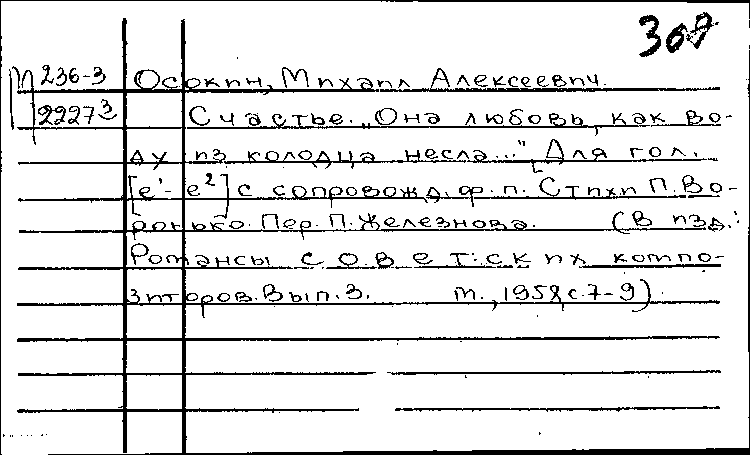 309
М 236-3 Осокин, Михаил Алексеевич.
2227 3 Счастье. „Она любовь, как во-
ду из колодца несла..." [Для гол.
[e¹- e²] с сопровожд. ф.п. Стихи П. Во-
ронько. Пер. П. Железнова. (В изд.:
Романсы советских компо-
зиторов. Вып. 3. М., 1958, с. 7-9).